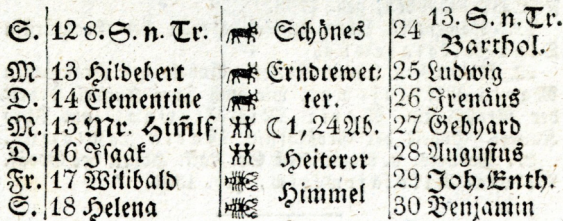 S. 12 8. S. n. Tr. Schönes 24 13. S. n. Tr. Barthol.
M. 13 Hildebert Erndtewet⸗ 25 Ludwig
D. 14 Clementine ter. 26 Irenäus
M. 15 Mr. Him̄lf. ☾ 1, 24 Ab. 27 Gebhard
D. 16 Isaak Heiterer 28 Augustus
Fr. 17 Wilibald Himmel 29 Joh. Enth.
S. 18 Helena 30 Benjamin